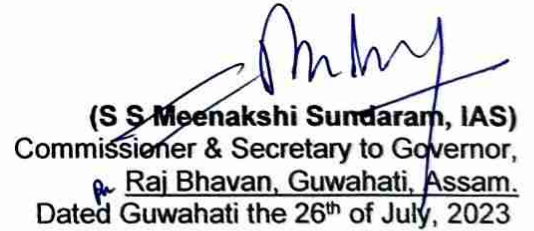 (S S Meenakshi Sundaram, IAS)
Commissioner & Secretary to Governor,
Raj Bhavan, Guwahati, Assam.
Dated Guwahati the 26th of July, 2023